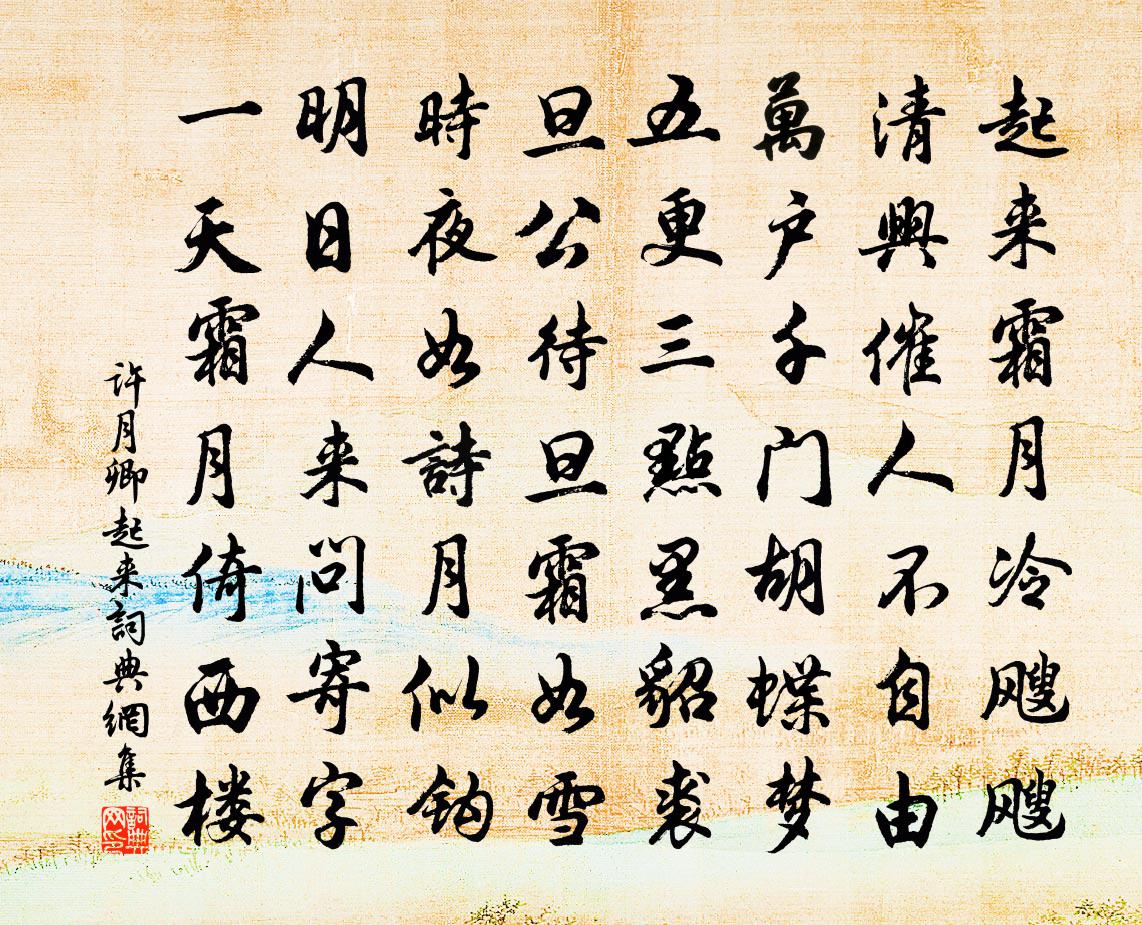 起来霜月冷飕飕
清興催人不自由
萬户千门胡蝶梦
五更三點黑貂裘
旦公待旦霜如雪
時夜如詩月似鈎
明日人来問寄字
一天霜月倚西楼
许月卿起来詞典網集
詞典网印